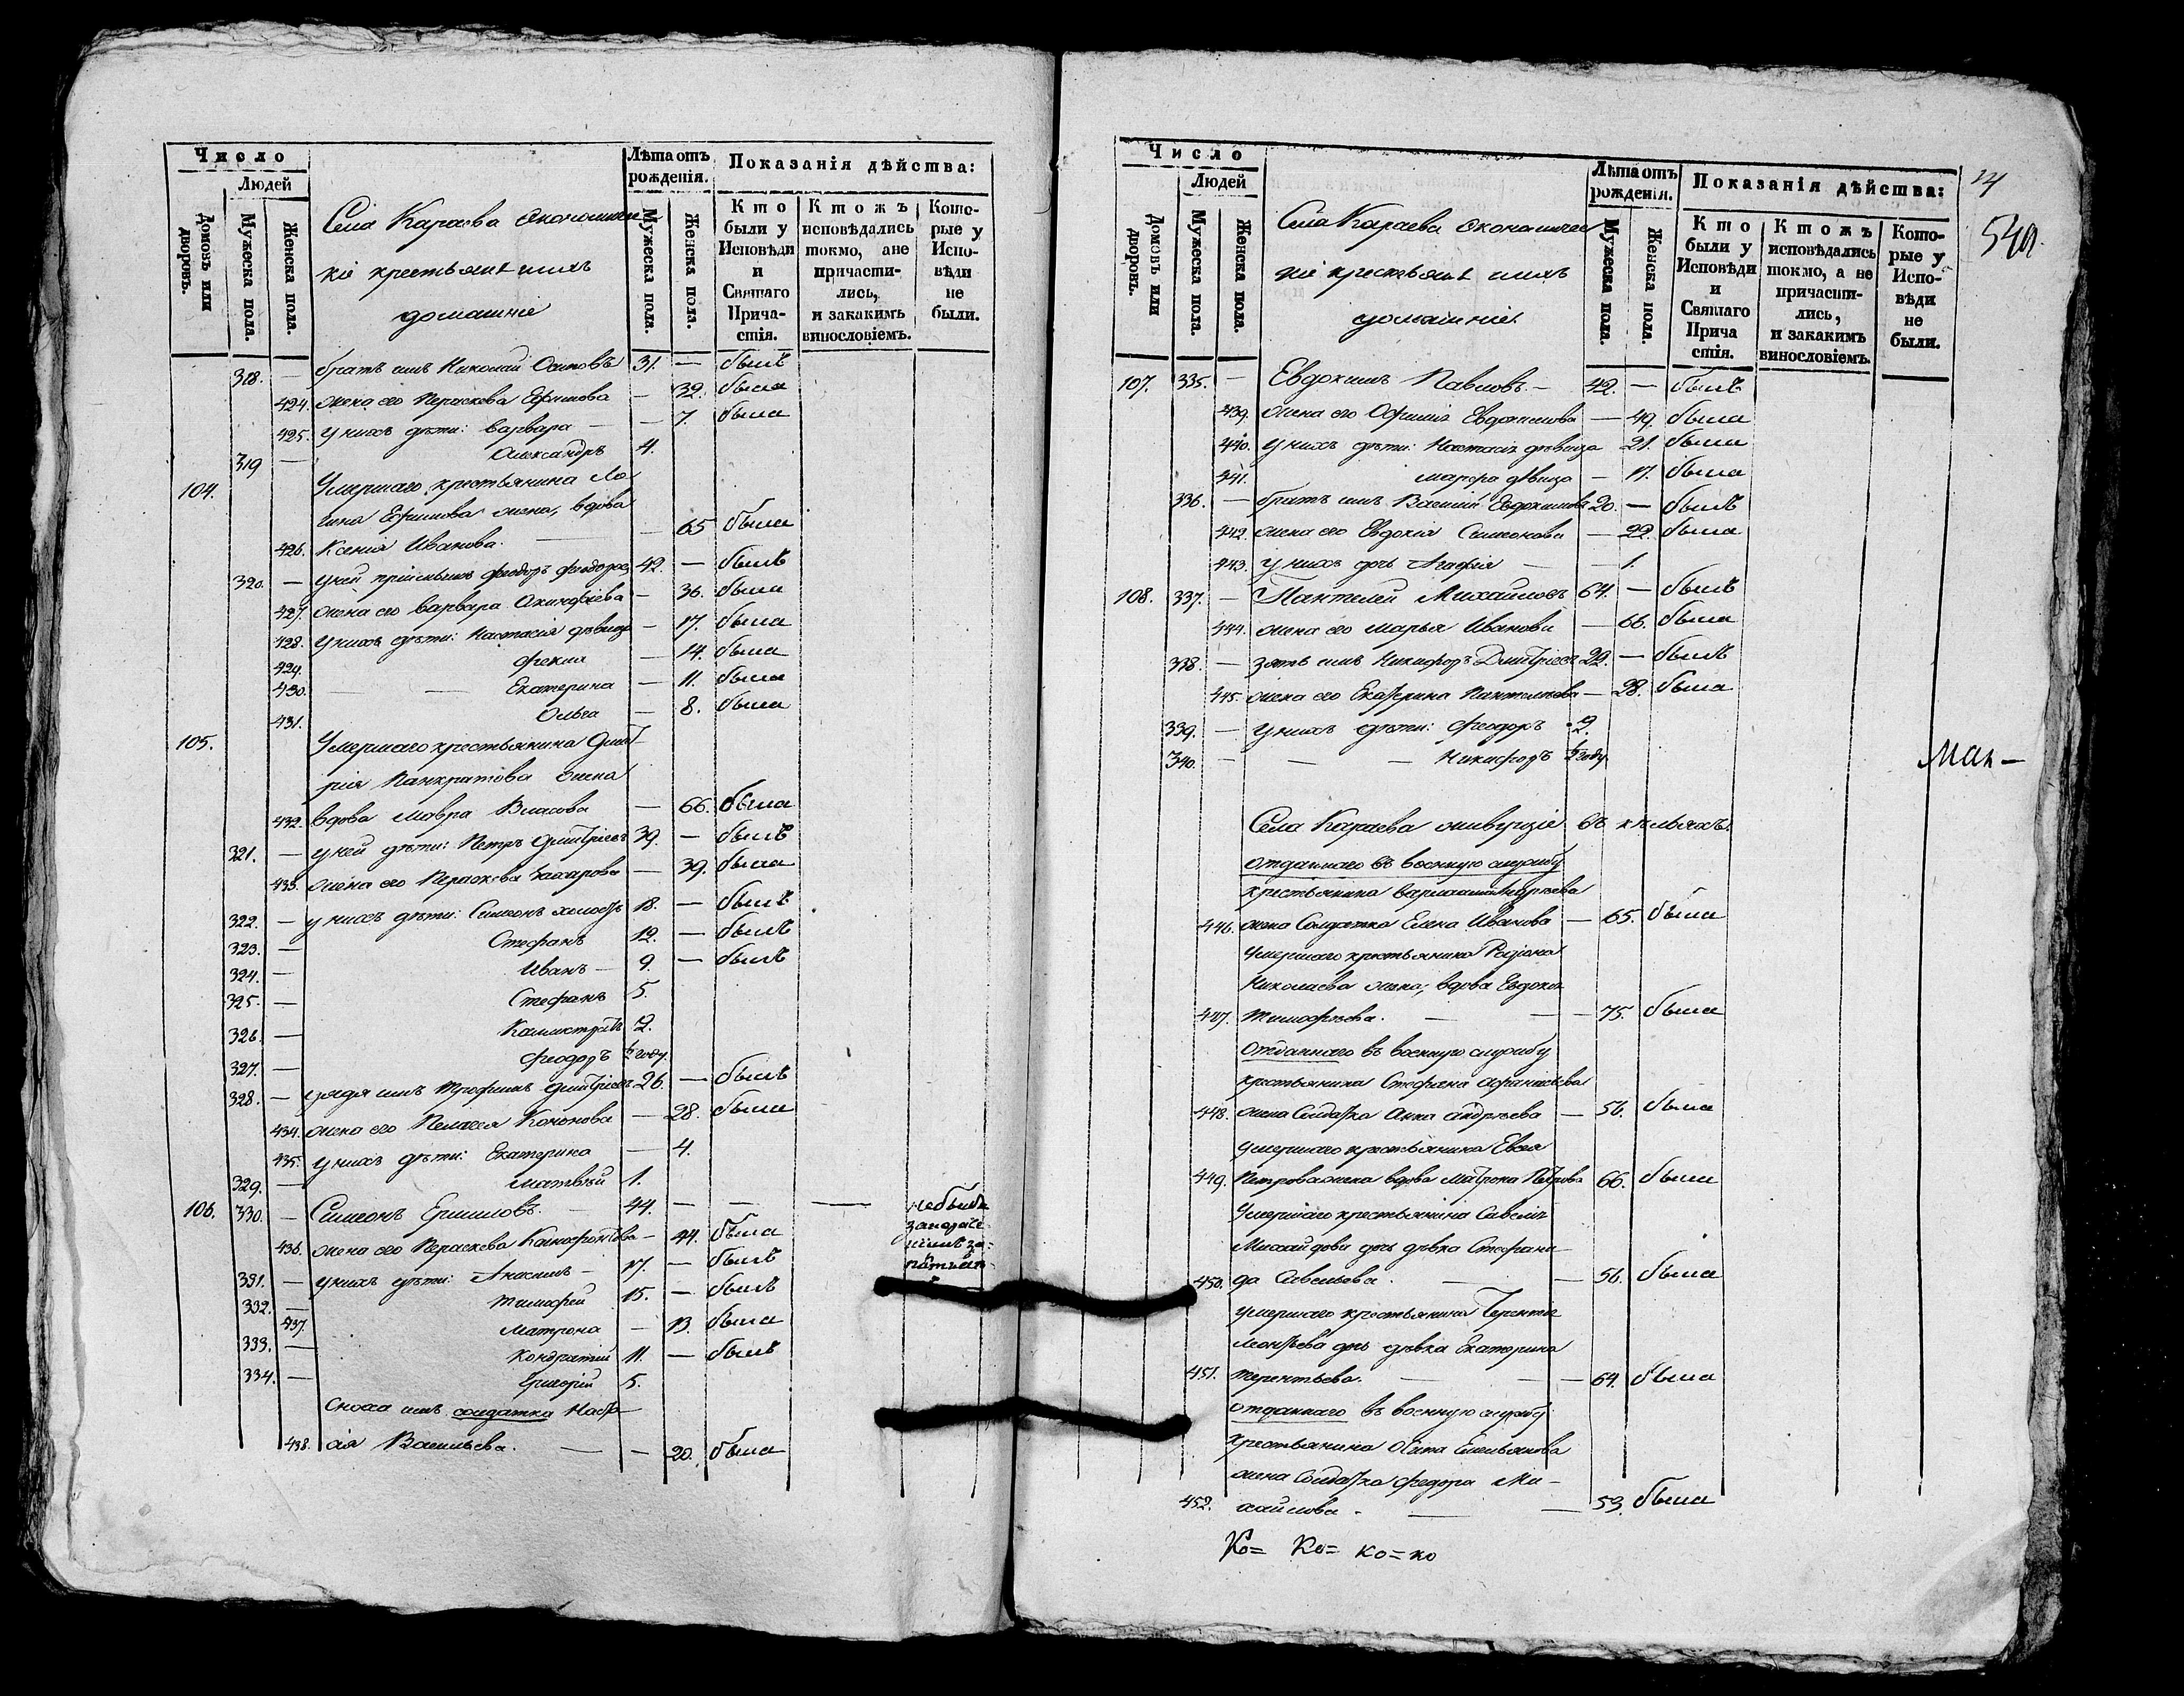 Число
Людей
Домовъ или дворовъ.
Мужеска пола.
Женска пола.
Села Караева Экономичес
кіе крестьяне и ихъ
домашніе
Лѣта отъ рожденія.
Мужеска пола.
Женска пола.
Показанія дѣйства:
Кто были у Исповѣди и Святаго Причастія.
Ктожъ исповѣдались токмо, а не причастились, и за какимъ винословіемъ.
Которые у Исповѣди не были.
318. — братъ ихъ Николай Осиповъ 31. — былъ
424. жена его Параскева Ефимова — 32. была
425. у нихъ дѣти: Варвара — — 7. была
319 — Александръ 4.
104. Умершаго крестьянина Ло
гина Ефимова жена, вдова
426. Ксенія Иванова. — 65 была
320. — у ней пріемышъ Феодоръ Феодоров 42. — былъ
427. жена его Варвара Акинфіева — 36. была
428. у нихъ дѣти: Настасія дѣвица — 17. была
429. Фекла — 14. была
430. — — Екатерина — 11. была
431. Ольга — 8. была
105. Умершаго крестьянина Дмит
рія Панкратова жена
432. вдова Мавра Власова — 66. была
321. — у ней дѣти: Петръ Дмитріевъ 39. — былъ
433. жена его Параскева Захарова — 39. была
322. — у нихъ дѣти: Симеонъ холостъ 18. — былъ
323. — Стефанъ 12. — былъ
324. — Иванъ — 9. — былъ
325. — Стефанъ 5.
326. — Калистратъ 2.
327. — Феодоръ ½ году.
328. — дядя ихъ Трофимъ Дмитріевъ 26. — былъ
434. жена его Пелагея Кононова — 28. была
435. у нихъ дѣти: Екатерина — 4.
329. — Матвѣй 1.
106. 330. — Симеонъ Ермиловъ. 44. — — — небылъ
436. жена его Параскева Ксенофонтова — 44. была
331. — у нихъ дѣти: Анисимъ — 17. — былъ
332. — Тимофей 15. — былъ
437. Матрона — 13. была
333. — Кондратий 11. — былъ
334. — Григорій 5.
Сноха ихъ солдатка Наста
438. сія Васильева. — — 20. была
Число
Людей
Домовъ или дворовъ.
Мужеска пола.
Женска пола.
Села Караева Экономичес
кіе крестьяне и ихъ
домашніе.
Лѣта отъ рожденія.
Мужеска пола.
Женска пола.
Показанія дѣйства:
Кто были у Исповѣди и Святаго Прича стія.
Ктожъ исповѣдались токмо, а не причастились, и закакимъ винословіемъ.
Которые у Исповѣди не были.
107. 335. — Евдокимъ Павловъ — 42. — былъ
439. жена его Офимія Евдокимова — 49. была
440. у нихъ дѣти: Настасія дѣвица 21. была
441. Марфа дѣвица — 17. была
336. — братъ ихъ Василій Евдокимовъ 20. — былъ
442. жена его Евдокія Симеонова — 22. была
443. у нихъ дочь Агафія — — 1.
108. 337. — Пантелей Михайловъ 64. — былъ
444. жена его Марья Иванова — 66. была
338. — зять ихъ Никифоръ Дмитріевъ 22. — былъ
445. жена его Екатерина Пантелѣева — 28. была
339. — у нихъ дѣти: Феодоръ 2.
340. — — — Никифоръ ½ году
Села Караева живущіе въ кѣльяхъ:
отданнаго въ военную службу
446. жена Солдатка Елена Иванова — 65. была
Умершаго крестьянина Родіона
Николаева жена, вдова Евдокія
447. Тимофѣева. — — 75. была
Отданнаго въ военную службу
крестьянина Стефана Афанасьева
448. жена Солдатка Анна Андрѣева — 56. была
умершаго крестьянина Евсея
449. Петрова жена вдова Матрона Петрова 66. была
Умершаго крестьянина Савелія
дочь дѣвка Стефани
450. да Савельева. — — 56. была
умершаго крестьянина Терентія
Леонтьева дочь дѣвка Екатерина
451. Терентьева. — — 64. была
Отданнаго въ военную службу
крестьянина Осипа Емельянова
жена Солдатка Федора Ми-
452. хайлова. — — 53. была
Ко= Ко= ко=ко
Мак —